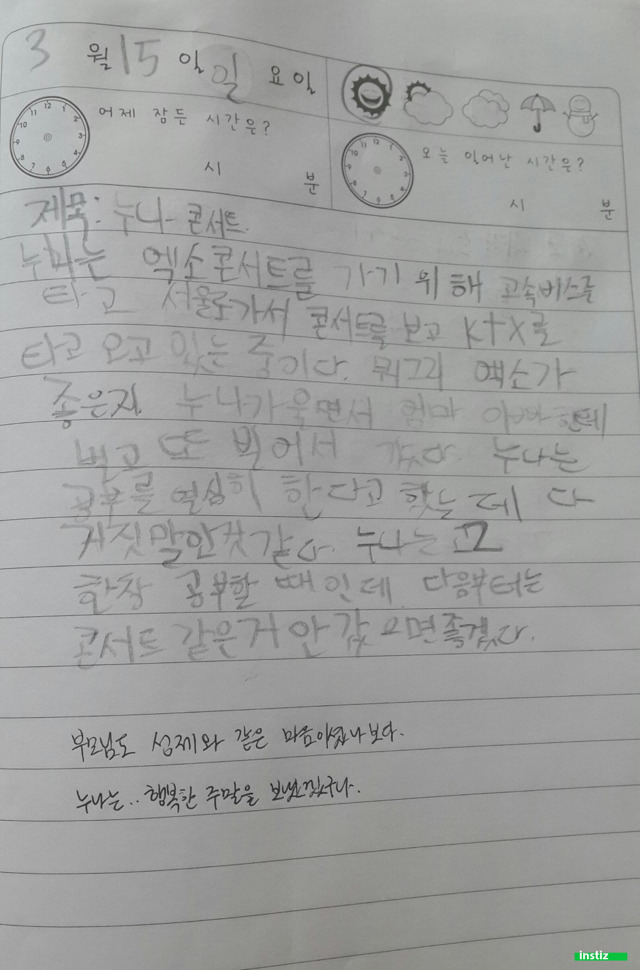 3 월 15 일 일 요일
어제 잠든 시간은?
시 분
오늘 일어난 시간은?
시 분
제목: 누나 콘서트
누나는 엑소콘서트를 가기 위해 고속버스를
타고 서울로가서 콘서트를 보고 ktx를
타고 오고 있는 중이다. 뭐그리 엑소가
좋은지 누나가 울면서 엄마 아빠한테
빌고 또 빌어서 갔다. 누나는
공부를 열심히 한다고 했는데 다
거짓말인것 같다. 누나는 고2
한창 공부할 때인데 다음부터는
콘서트 같은거 안 갔으면 좋겠다.
부모님도 성제와 같은 마음이셨나보다.
누나는.. 행복한 주말을 보냈겠구나.
instiz